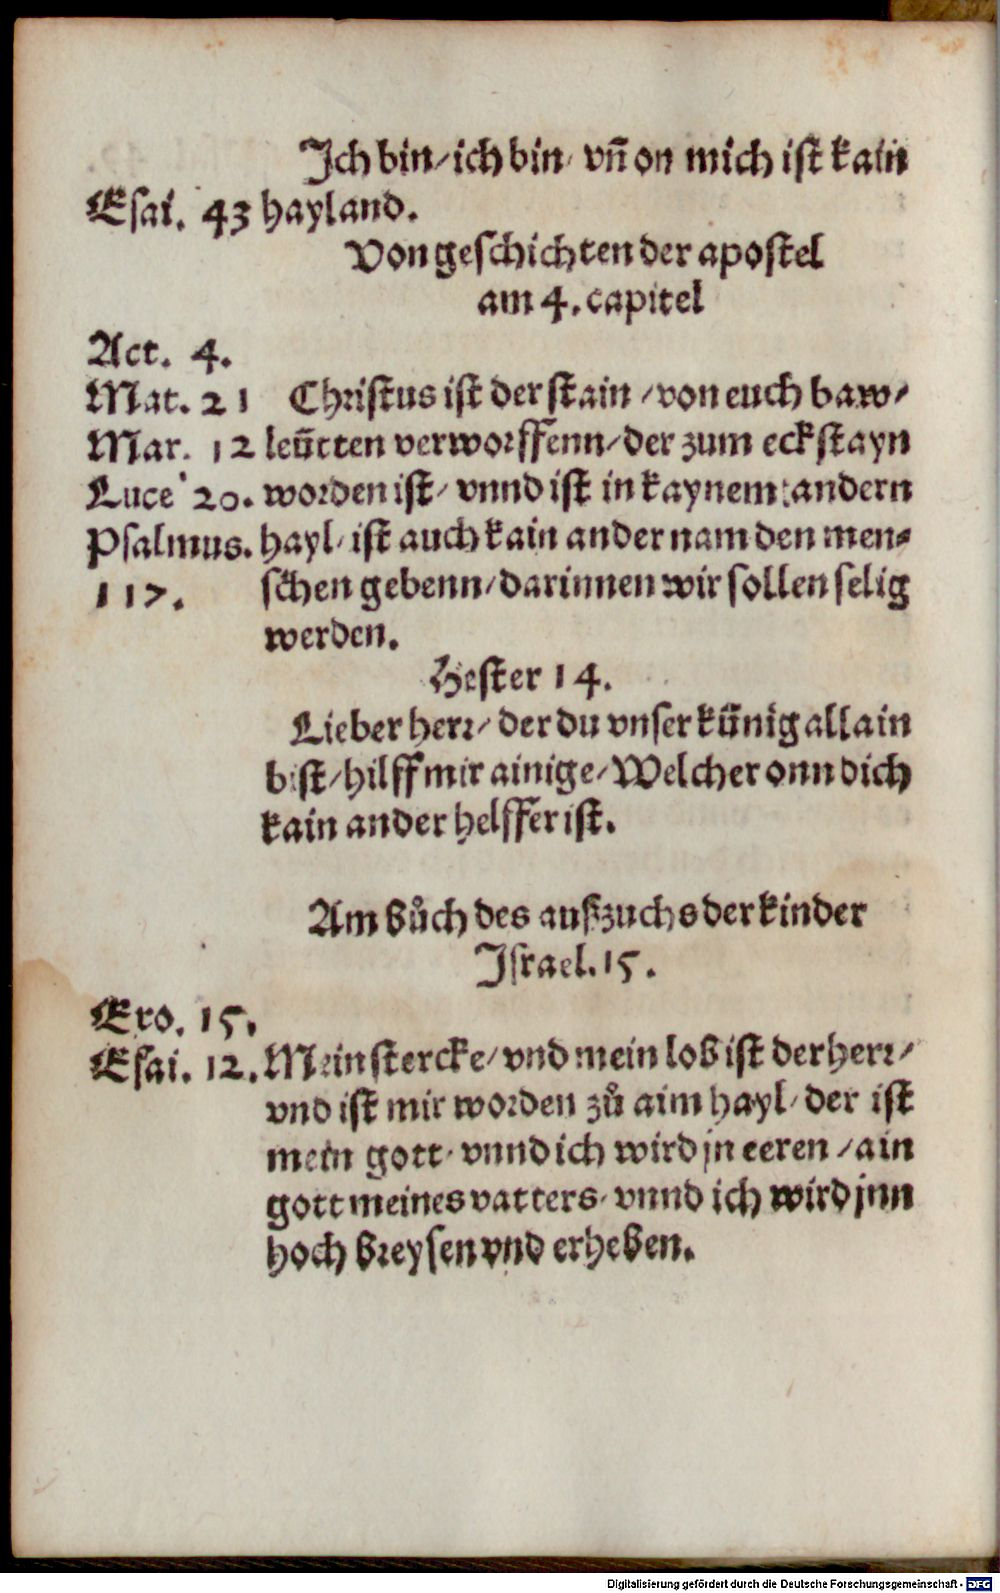 Ich bin/ ich bin/ vñ on mich ist kain
Esai. 43 hayland.
Von geschichten der apostel
am 4. capitel
Act. 4.
Mat. 21 Christus ist der stain / von euch baw/
Mar. 12 leütten verworffenn/ der zum eckstayn
Luce 20. worden ist/ vnnd ist in kaynem andern
Psalmus. hayl/ ist auch kain ander nam den men⸗
117. schen gebenn/ darinnen wir sollen selig
werden.
Hester 14.
Lieber herr/ der du vnser künig allain
bist/ hilff mir ainige/ Welcher onn dich
kain ander helffer ist.
Am bůch des außzuchs der kinder
Israel. 15.
Exo. 15.
Esai. 12. Mein stercke/ vnd mein lob ist der herr/
vnd ist mir worden zů aim hayl/ der ist
mein gott/ vnnd ich wird jn eeren / ain
gott meines vatters/ vnnd ich wird jnn
hoch breysen vnd erheben.
Digitalisierung gefördert durch die Deutsche Forschungsgemeinschaft - DFG